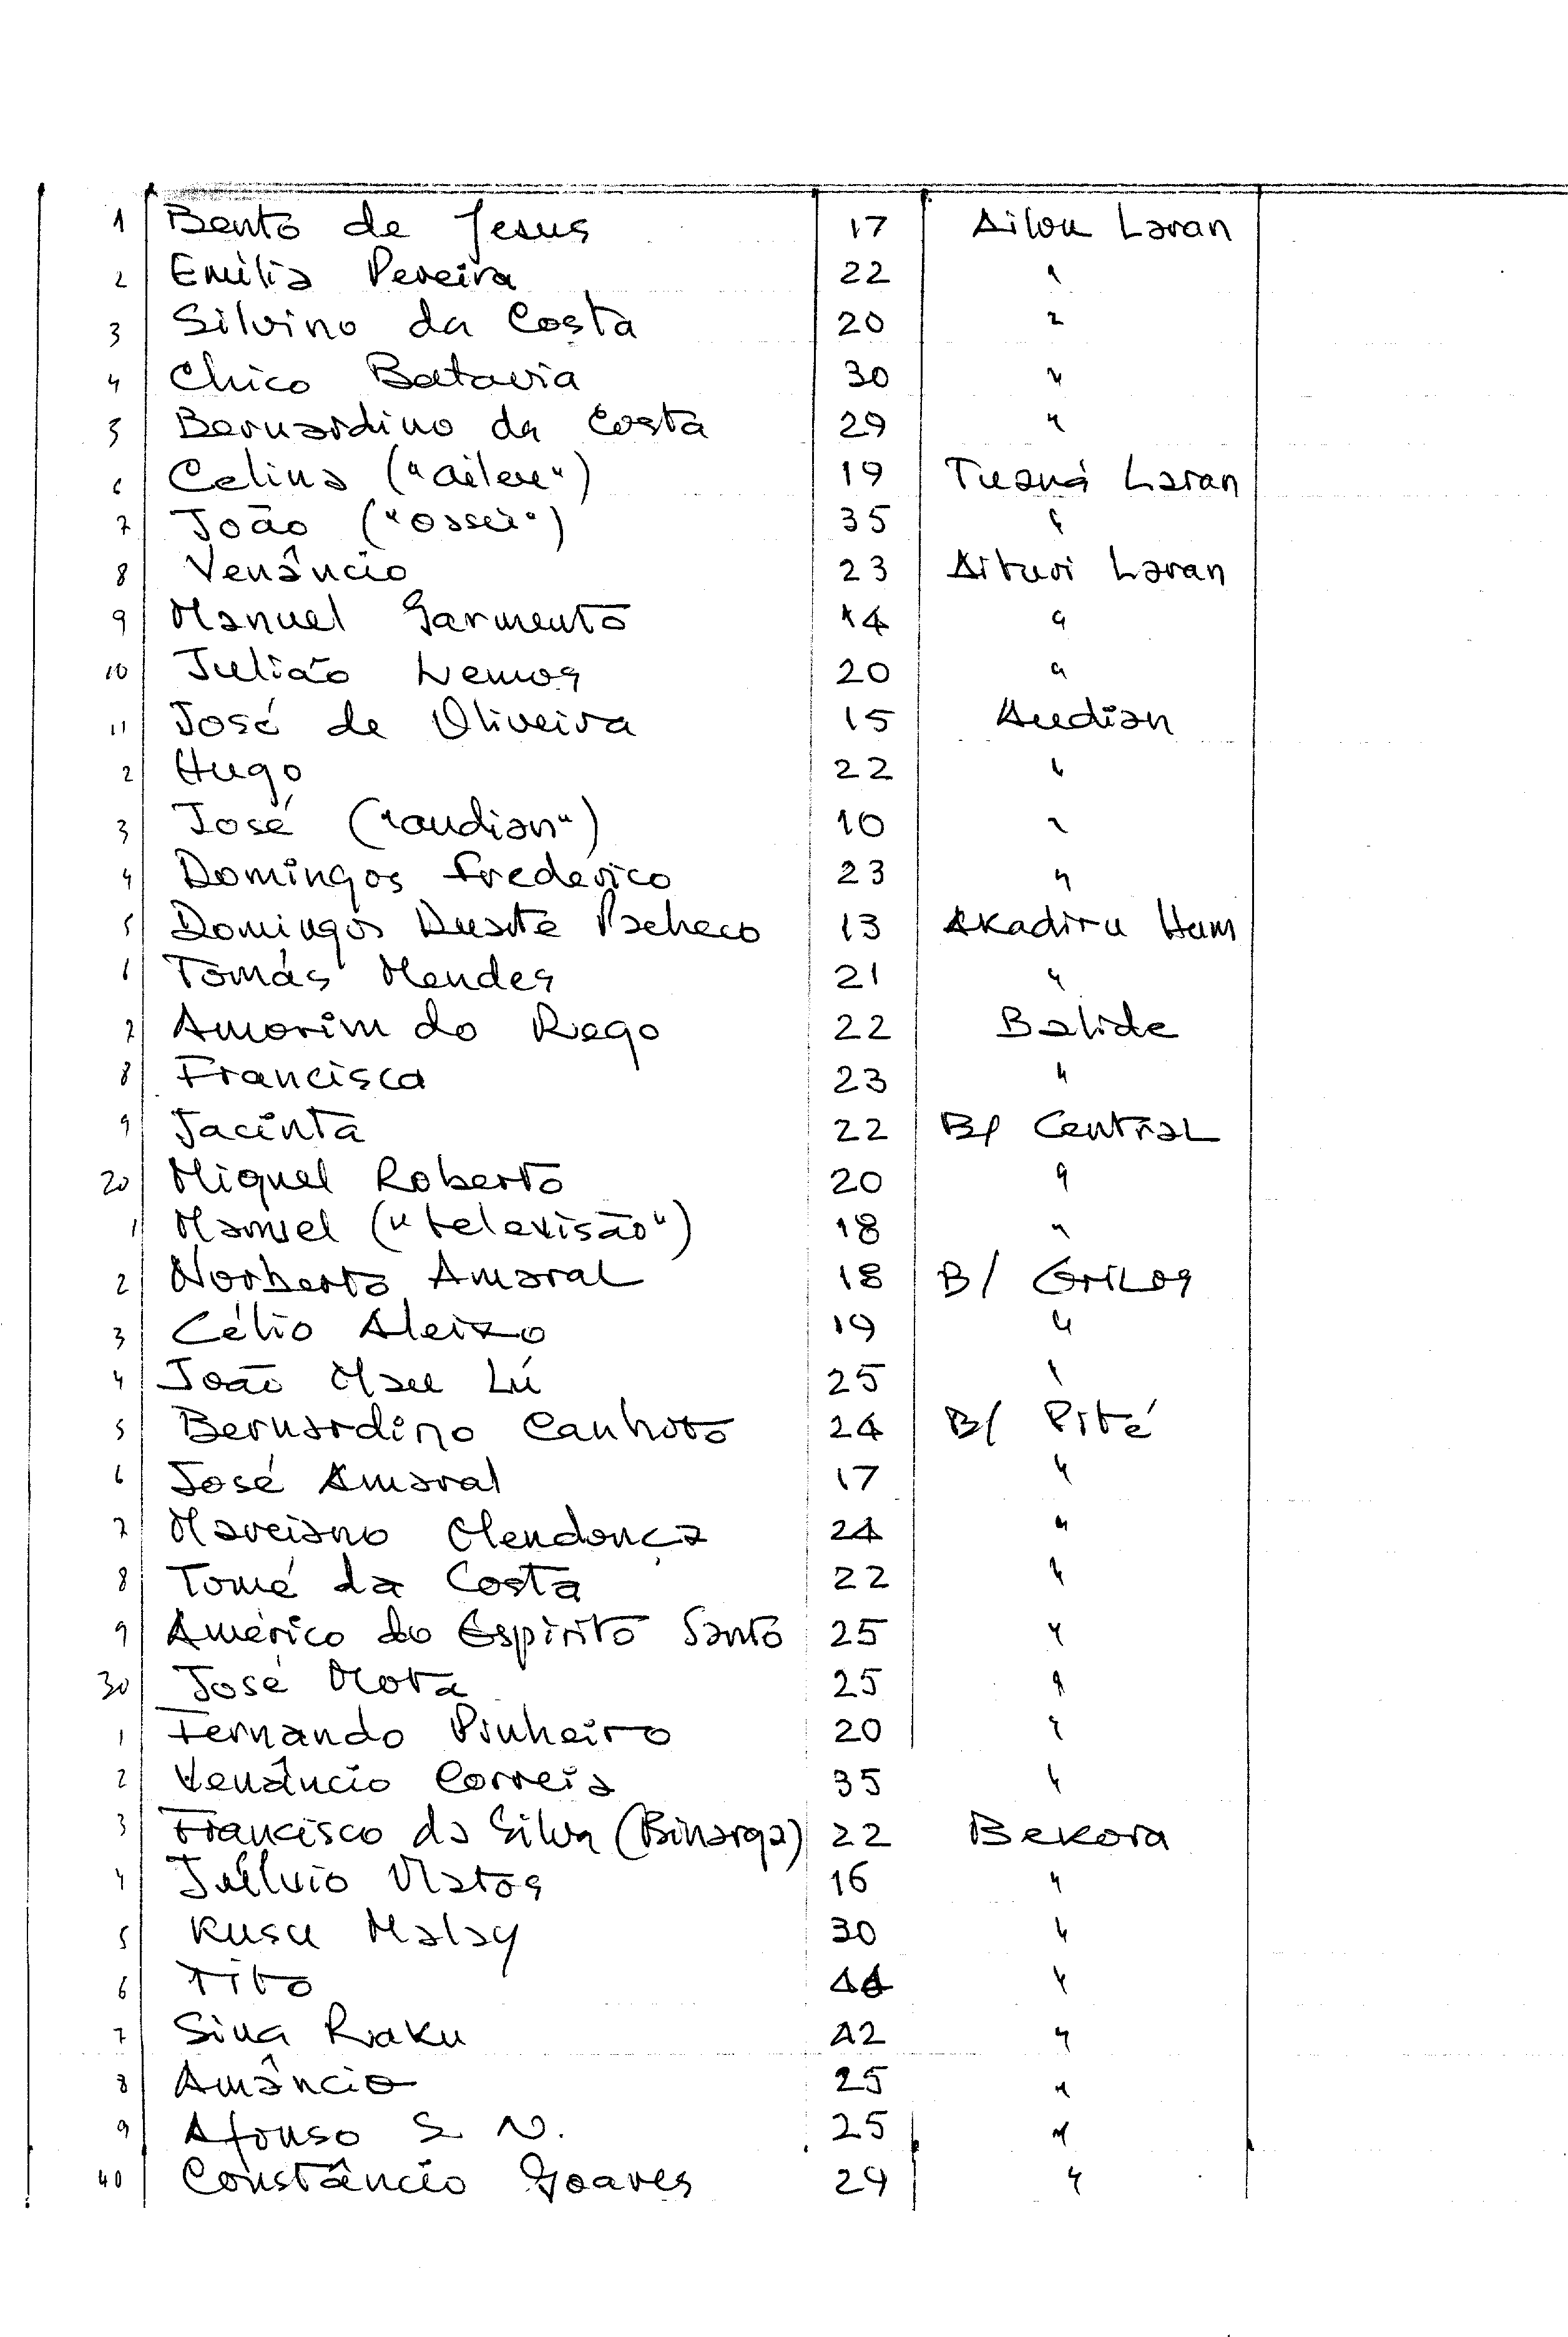 1 Bento de Jesus 17 Ailou Laran
2 Emília Pereira 22 "
3 Silvino da Costa 20 "
4 Chico Batavia 30 "
5 Bernardino da Costa 29 "
6 Celina ("ailou") 19 Tuaná Laran
7 João ("ossu") 35 "
8 Venâncio 23 Aituri Laran
9 Manuel Sarmento 14 "
10 Julião Lemos 20 "
11 José de Oliveira 15 Audian
2 Hugo 22 "
3 José ("audian") 10 "
4 Domingos Frederico 23 "
5 Domingos Duarte Pacheco 13 Akadiru Hum
6 Tomás Mendes 21 "
7 Amorim do Rego 22 Balide
8 Francisca 23 "
9 Jacinta 22 B/ Central
20 Miguel Roberto 20 "
1 Manuel ("televisão") 18 "
2 Norberto Amaral 18 B/ Grilos
3 Célio Aleixo 19 "
4 João Mau Lú 25 "
5 Bernardino Canhoto 24 B/ Pité
6 José Amaral 17 "
7 Marciano Mendonça 24 "
8 Tomé da Costa 22 "
9 Américo do Espírito Santo 25 "
30 José Mota 25 "
1 Fernando Pinheiro 20 "
2 Venâncio Correia 35 "
3 Francisco da Silva (Binaraga) 22 Bekora
4 Matos 16 "
5 Kusu Malay 30 "
6 Tito "
7 Sina Raku 42 "
8 Amâncio 25 "
9 Afonso S. N. 25 "
40 Constâncio Soares 29 "